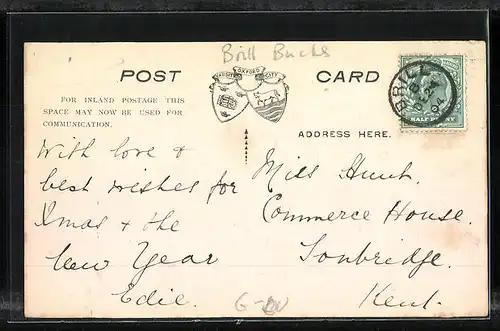 Brill Bucks
POST CARD
VARSITY OXFORD CITY
FOR INLAND POSTAGE THIS
SPACE MAY NOW BE USED FOR
COMMUNICATION.
ADDRESS HERE.
BRILL
DE 24
04
HALF PENNY
With love &
best wishes for
Xmas & the
New Year
Edie.
Miss Hunt.
Commerce House.
Tonbridge.
Kent.